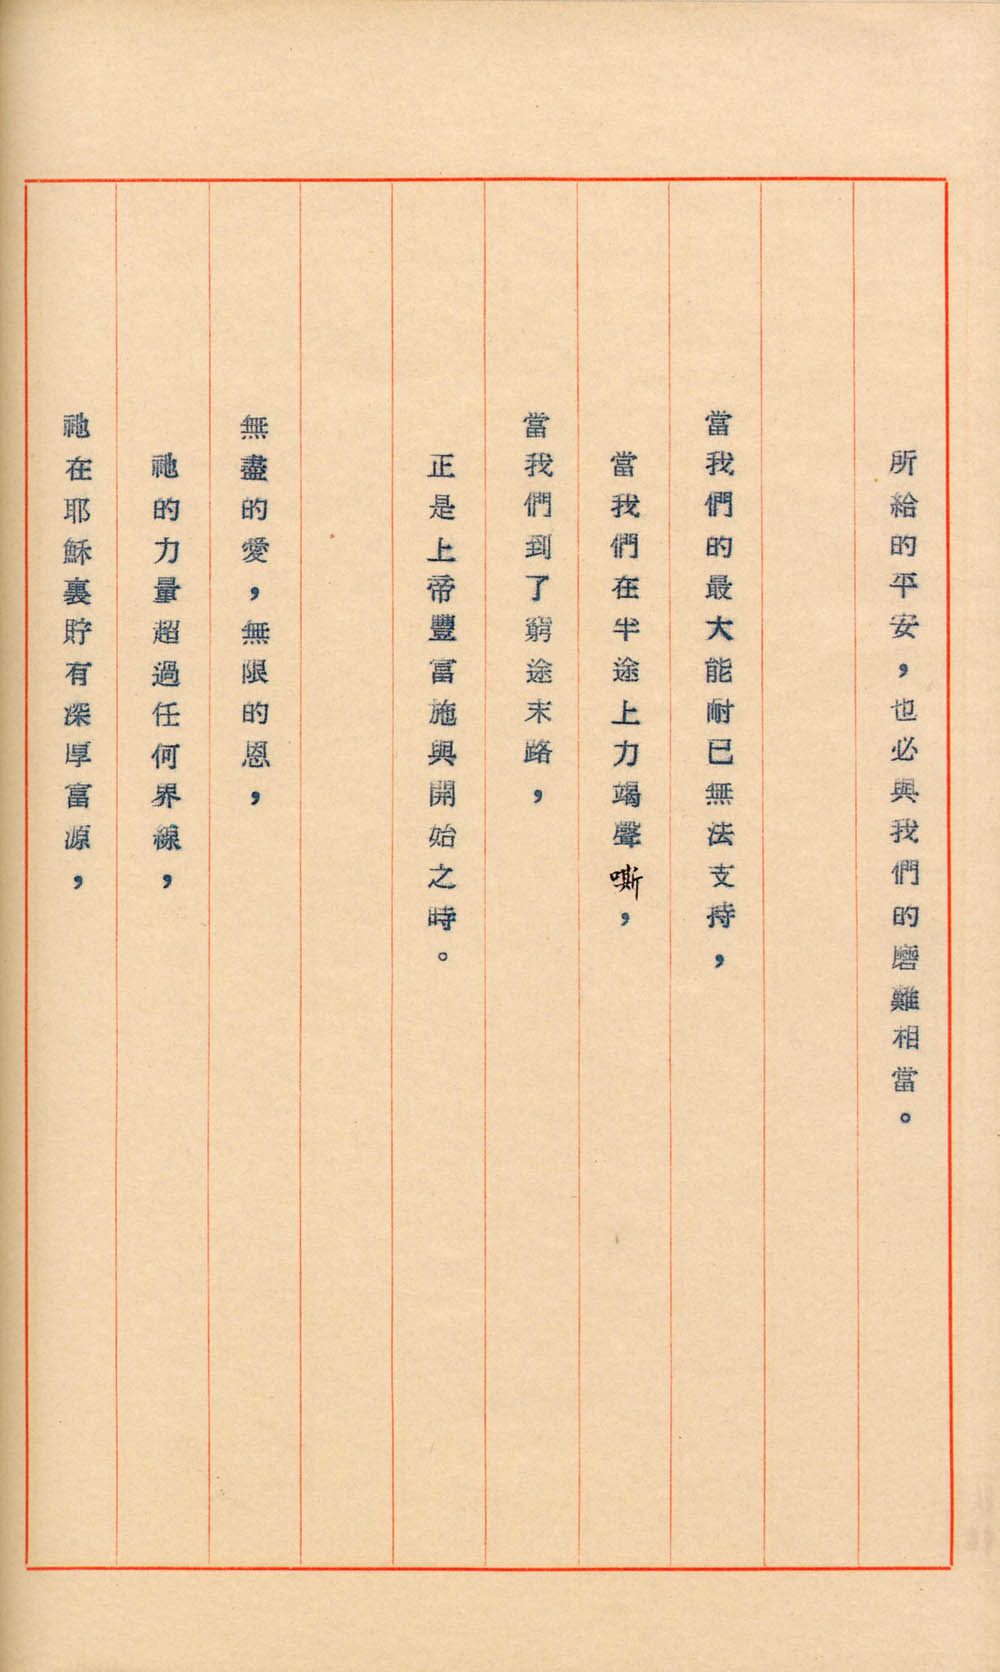 所給的平安，也必與我們的磨難相當。
當我們的最大能耐已無法支持，
當我們在半途上力竭聲嘶，
當我們到了窮途末路，
正是上帝豐富施與開始之時。
無盡的愛，無限的恩，
祂的力量超過任何界線，
祂在耶穌裏貯有深厚富源，